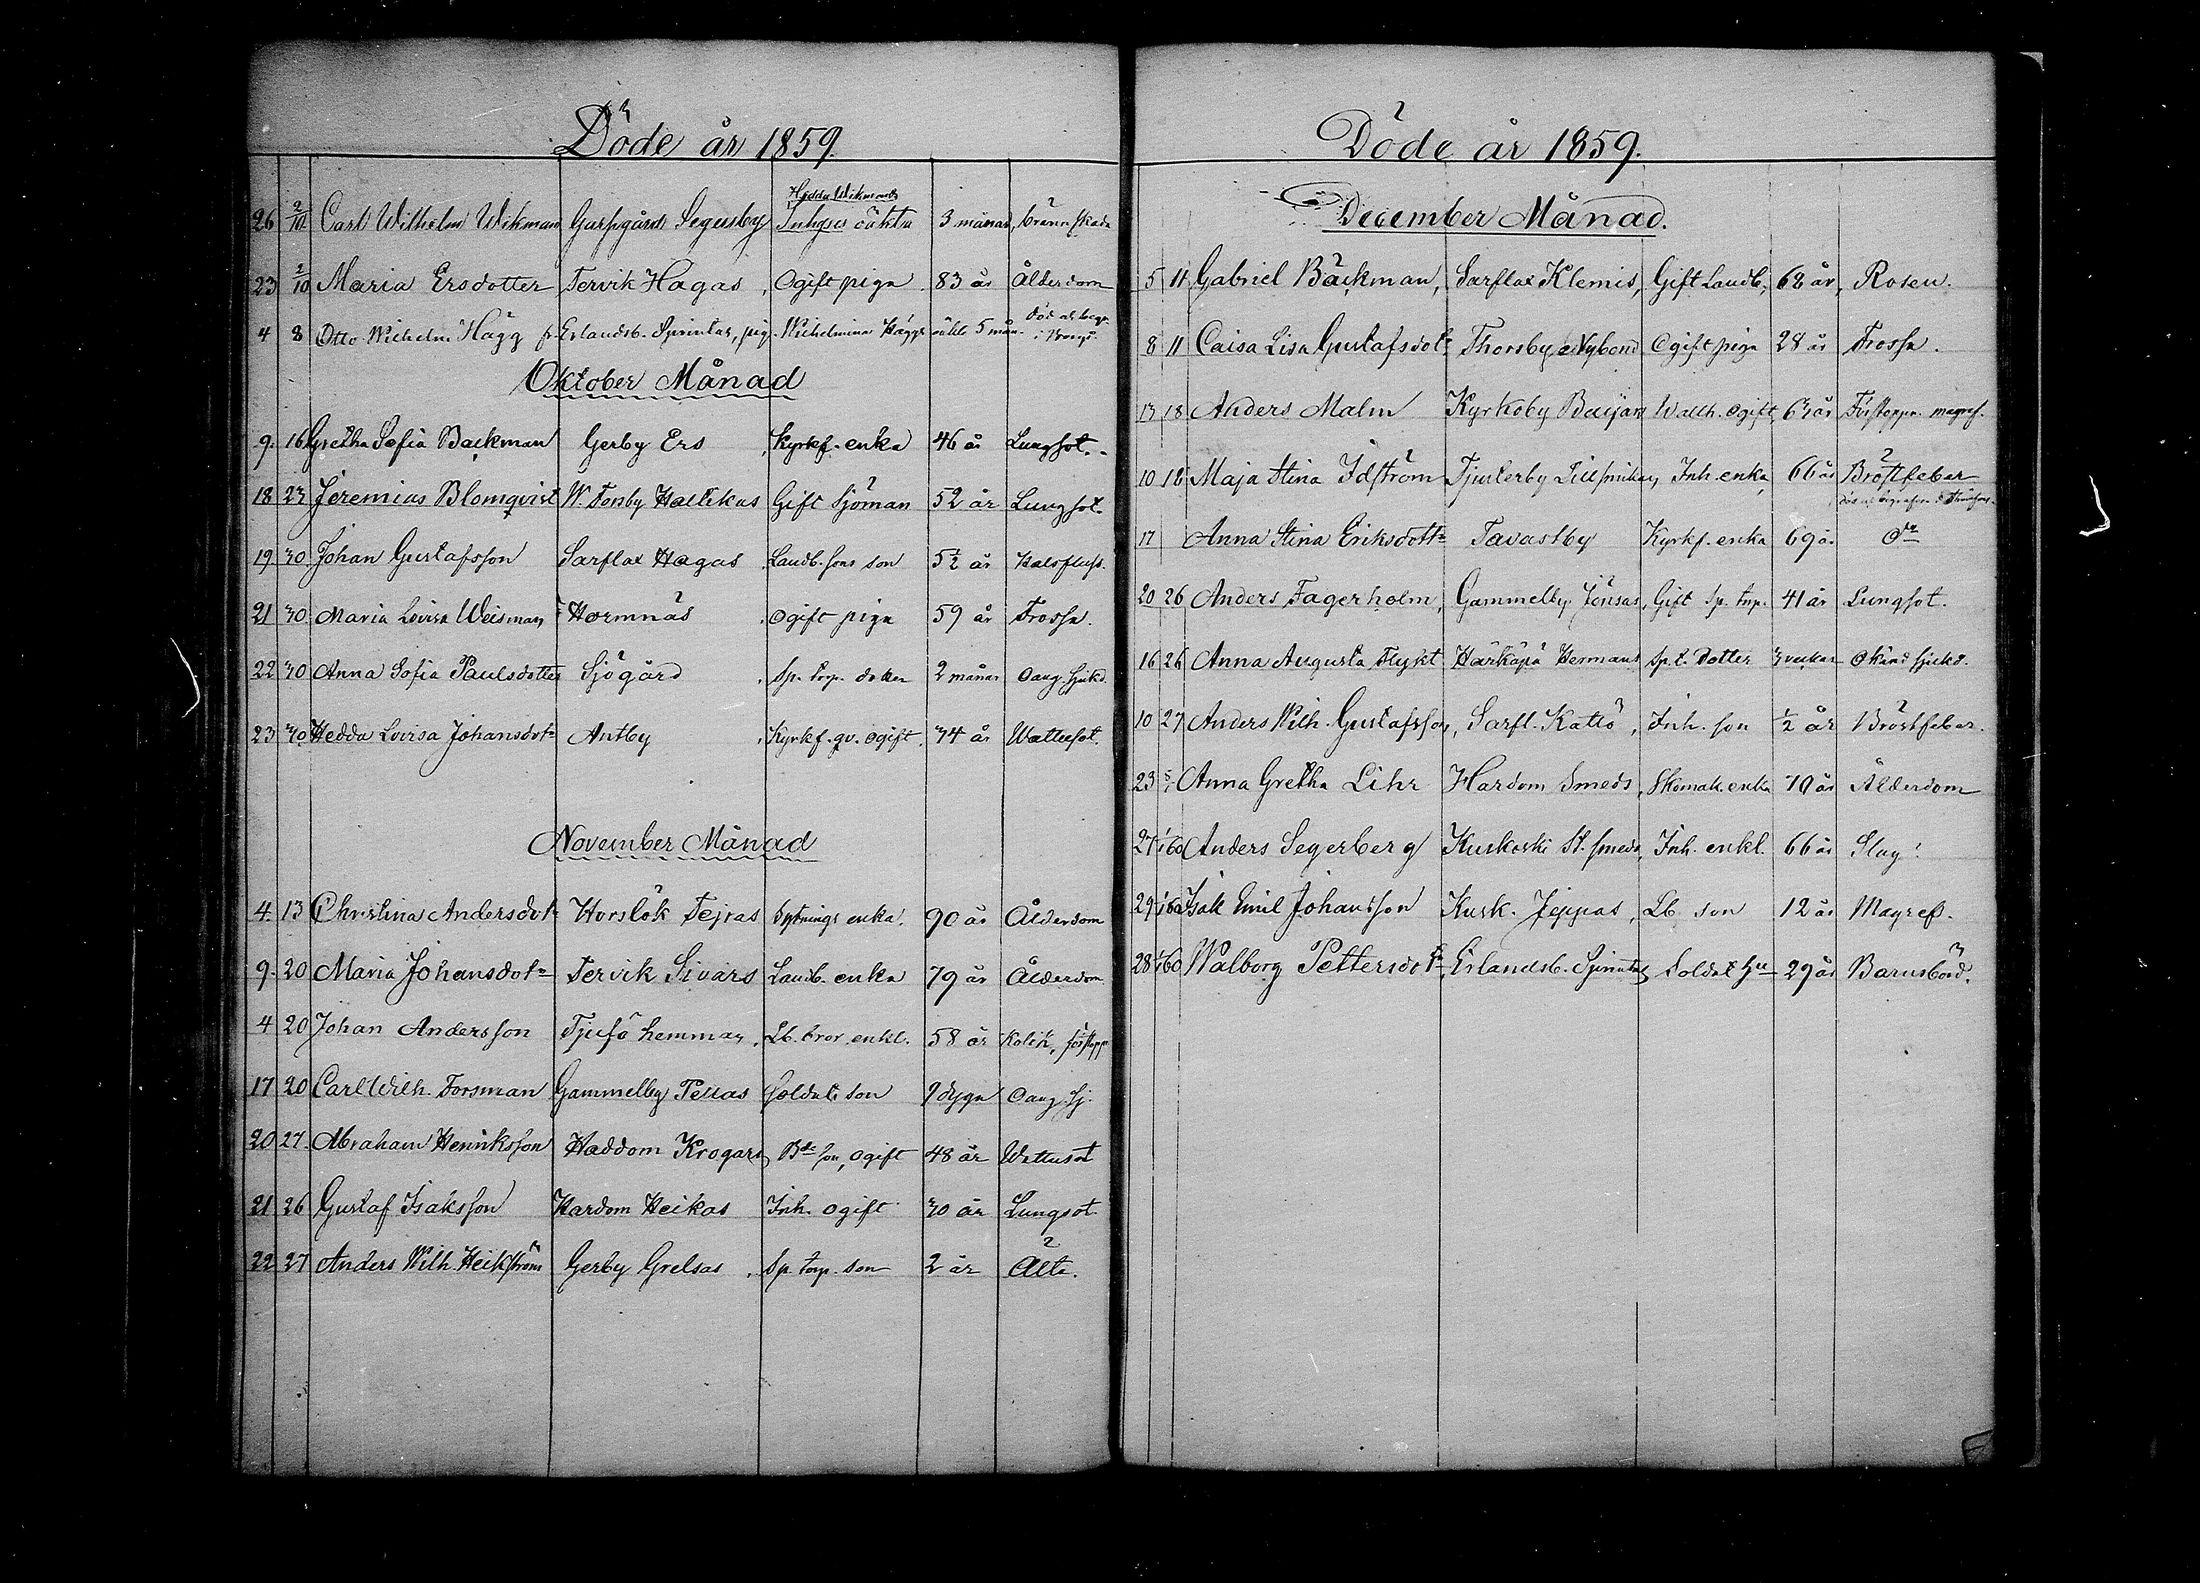 Döde år 1859.
Hedda Wikmans
26 2/10 Carl Wilhelm Wikman Garpgård Segersby Inhyses oäkta 3 månad, bränskada
23 2/10 Maria Ersdotter Tervik Hagas, Ogift piga 83 år Ålderdom
4 8 Otto Wilhelm Hägg fr. Erlandsb. Spinkar, pig. Wilhelmina Häggs oäkta 5 mån. död at begr. i Borgå.
Oktober Månad
9. 16 Gretha Sofia Backman Gerby Ers Kyrkf. enka 46 år Lungsot.
18 23 Jeremias Blomqvist W. Forsby Hallikas Gift Sjöman 52 år Lungsot.
19. 30 Johan Gustafsson Sarflax Hagas Landb. sons son 5½ år Halsfluss.
21 30 Maria Lovisa Weisman Hormnäs ogift piga 59 år Frossa.
22 30 Anna Sofia Paulsdotter Sjögård Sp. torp. dotter 2 månar Oang. Sjukd.
23 30 Hedda Lovisa Johansdotr Antby Kyrkf. qv. ogift. 34 år Wattusot.
November Månad
4. 13 Christina Andersdotr Horslök Tejras Sytnings enka. 90 år Ålderdom
9. 20 Maria Johansdotr Tervik Sivars Landb. enka 79 år Ålderdom
4 20 Johan Andersson Tjusö hemman, Lb. bror. enkl. 58 år Kolik, förstopp
17 20 Carl Wilh. Forsman Gammelby Pellas Soldats son 9 dygn Oang. Sj.
20 27. Abraham Henriksson Haddom Krogars Bde son, ogift 48 år Wattusot
21 26 Gustaf Isaksson Hardom Heikas Inh. ogift 30 år Lungsot
22 27 Anders Wilh. Heikström Gerby Grelsas, Sp. torp. son 2 år Älta.
Döde år 1859.
December Månad.
5 11 Gabriel Bäckman, Sarflax Klemis, Gift Landb, 68 år, Rosen.
8 11 Caisa Lisa Gustafsdotr Thorsby Nybond Ogift piga 28 år Frossa.
13 18 Anders Malm Kyrkoby Baijars Wallh. ogift, 63 år Förstoppn. magref.
10 18 Maja Stina Idström Tjusterby Lillsmikas Inh. enka 66 år Bröstfeber
17 Anna Stina Eriksdottr Tavastby Kyrkf. enka 69 år Do
20 26 Anders Fagerholm, Gammelby Jönsas, Gift Sp. torp. 41 år Lungsot.
16 26 Anna Augusta Flykt Härkäpä Hermans Sp. t. dotter 3 veckar Okänd sjukd.
10 27 Anders Wilh. Gustafsson, Sarfl. Kattö, Inh. son ½ år Bröstfeber.
23 Anna Gretha Lihr Hardom Smeds, Skomak. enka 70 år Ålderdom
27 1/60 Anders Segerberg Kuskoski St. smeds, Inh. enkl. 66 år Slag.
29 1/60 Isak Emil Johansson Kusk. Jeppas, Lb. son 12 år Magref.
28 1/60 Walborg Pettersdotr Erlandsb. Spinkas Soldat Hu 29 år Barnsbörd.